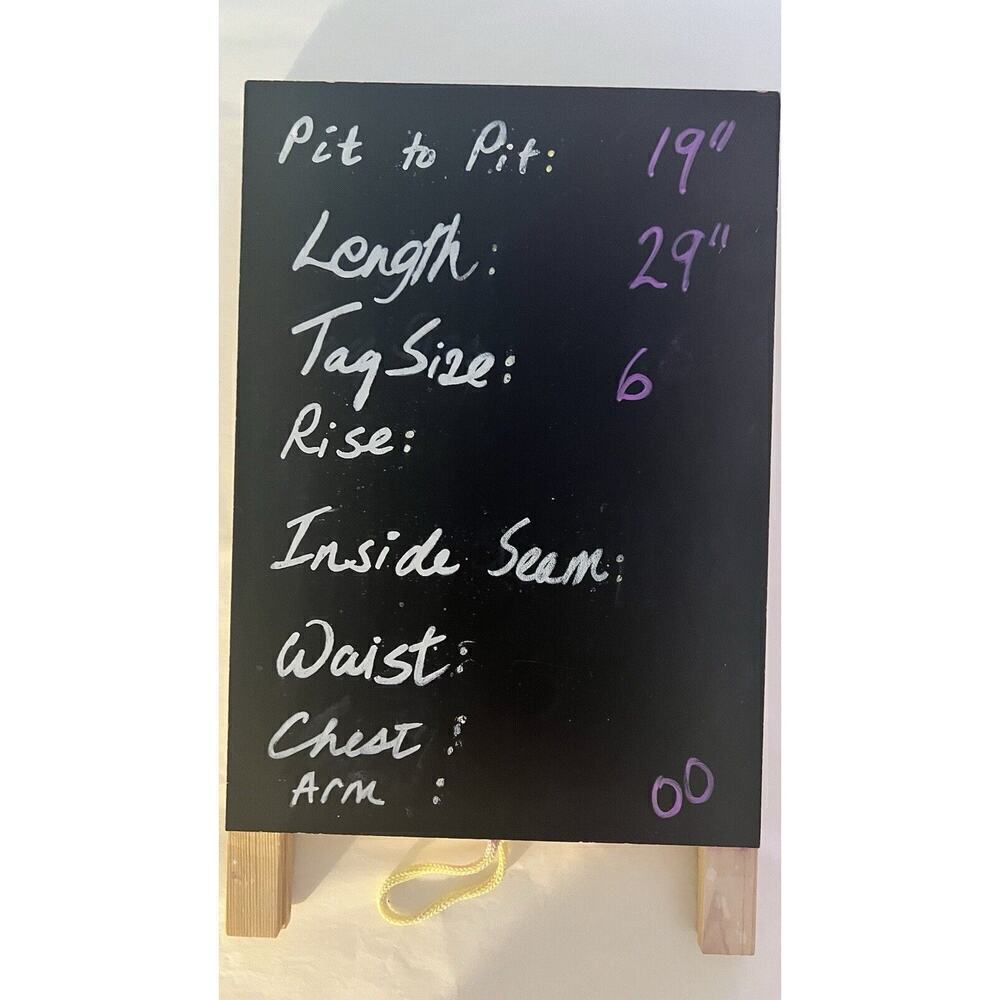 Pit to Pit: 19"
Length: 29"
Tag Size: 6
Rise:
Inside Seam:
Waist:
Chest:
Arm : 00